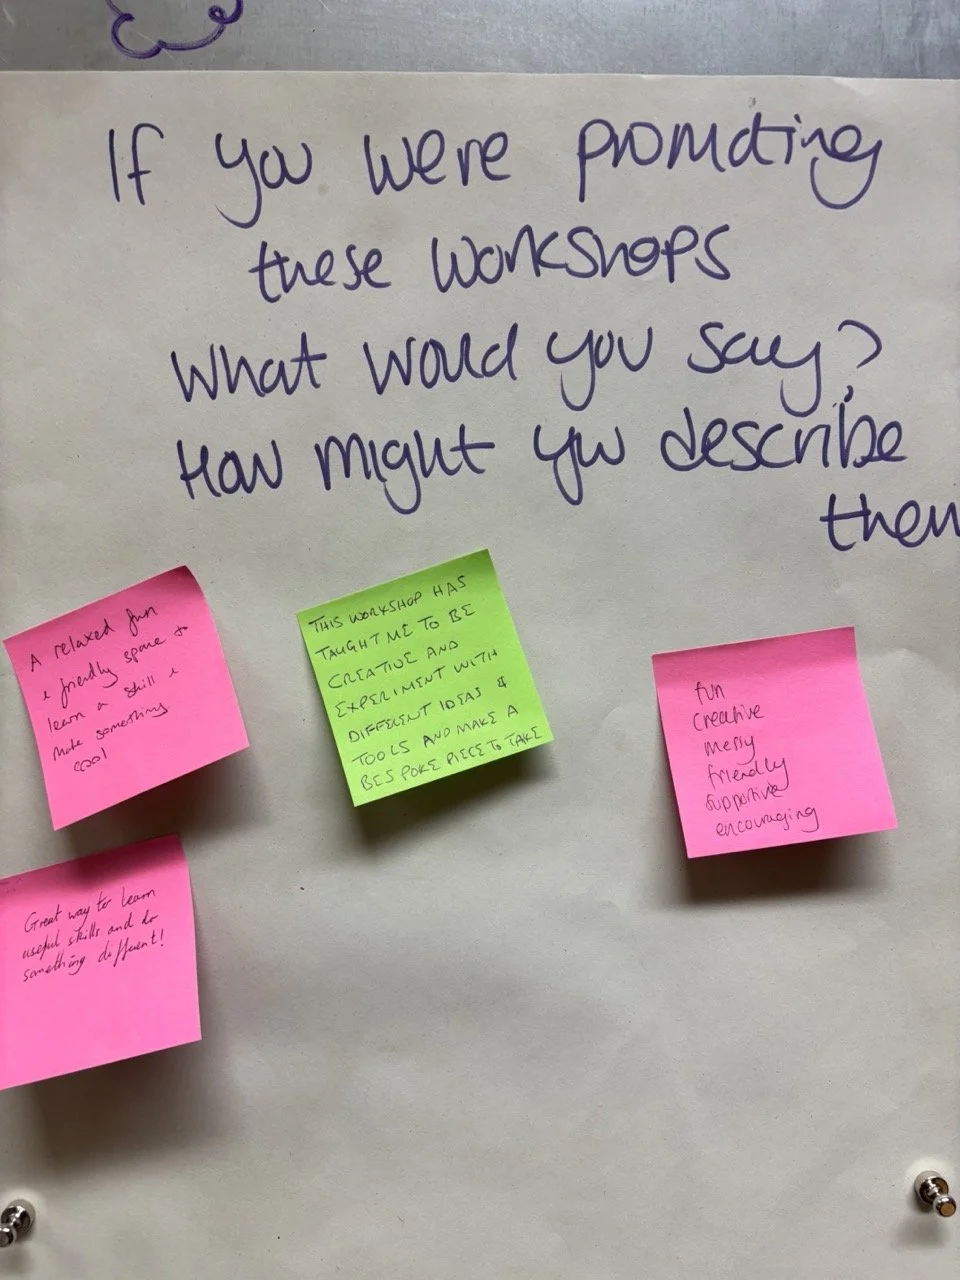 If you were promoting
these workshops
What would you say?
How might you describe
them
A relaxed fun
& friendly space to
learn a skill &
make something
cool
THIS WORKSHOP HAS
TAUGHT ME TO BE
CREATIVE AND
EXPERIMENT WITH
DIFFERENT IDEAS &
TOOLS AND MAKE A
BESPOKE PIECE TO TAKE
fun
creative
messy
friendly
supportive
encouraging
Great way to learn
useful skills and do
something different!